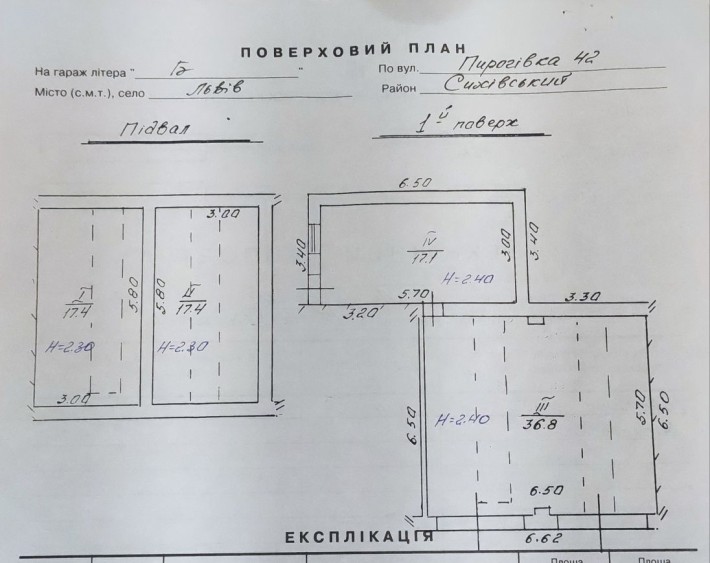 ПОВЕРХОВИЙ ПЛАН
На гараж літера " Г2 "
По вул. Пирогівка 42
Місто (с.м.т.), село Львів
Район Сихівський
Підвал
1й поверх
6.50
3.00
3.40
IV
17.1
3.00
3.40
H=2.40
I
17.4
5.80
5.80
II
17.4
5.70
3.20
3.30
H=2.30
H=2.30
3.00
6.50
H=2.40
III
36.8
5.70
6.50
6.50
ЕКСПЛІКАЦІЯ
6.62
Площа
Площа